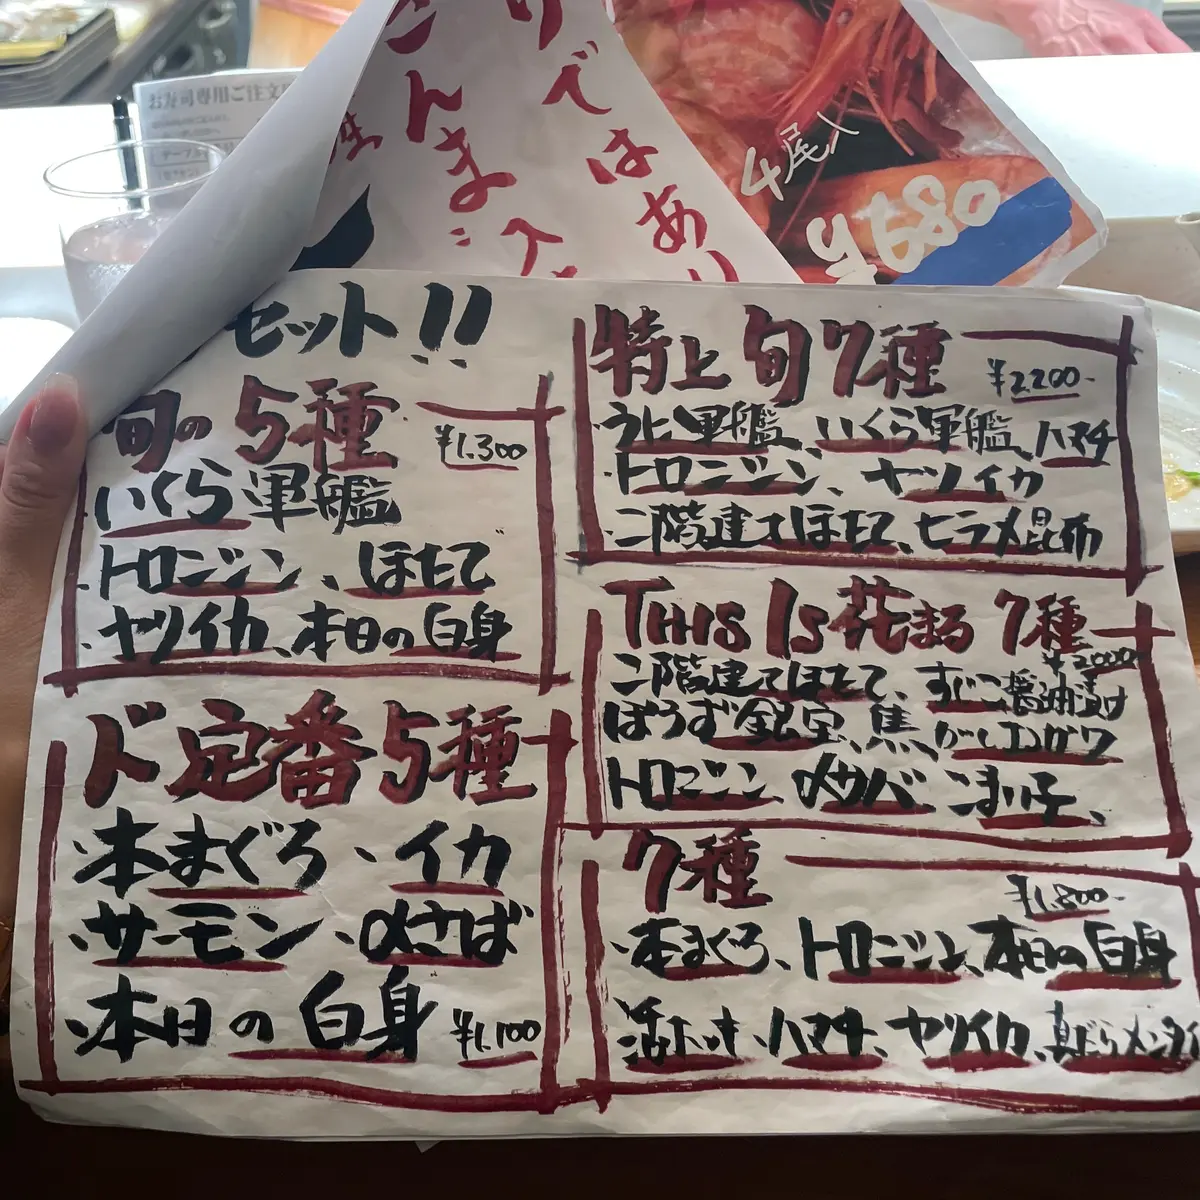 お寿司専用ご注文
さんま
りではあり
4尾入
¥680
セット!!
旬の5種
¥1.300
いくら軍艦
トロニシン、ほたて
ヤリイカ、本日の白身
ド定番5種
本まぐろ、イカ
サーモン、〆さば
本日の白身 ¥1.100
特上旬7種 ¥2200-
うに軍艦、いくら軍艦、ハマチ
トロニシン、ヤリイカ
二階建てほたて、ヒラメ昆布
THIS IS 花まる 7種
¥2000-
二階建てほたて、すじこ醤油漬け
トロニシン、〆サバ、こまい子、
7種
¥1.800-
本まぐろ、トロニシン、本日の白身
活ホッキ、ハマチ、ヤリイカ、真だち